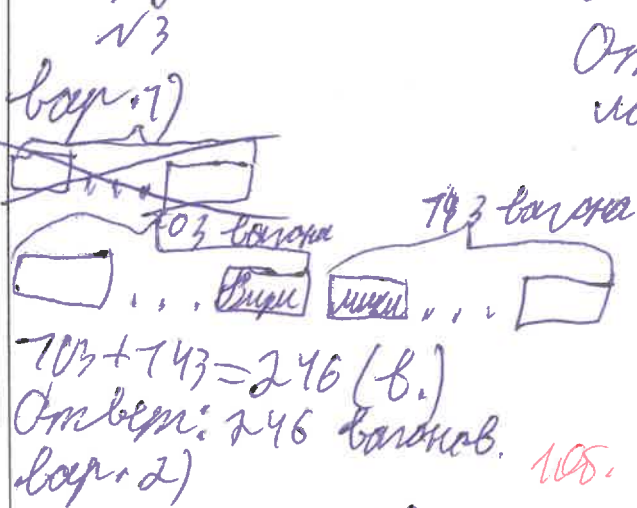 №3
От
вар.1)
103 вагона 143 вагона
... Вици мики ...
103+143=246 (в.)
Ответ: 246 вагонов.
10б.
вар.2)